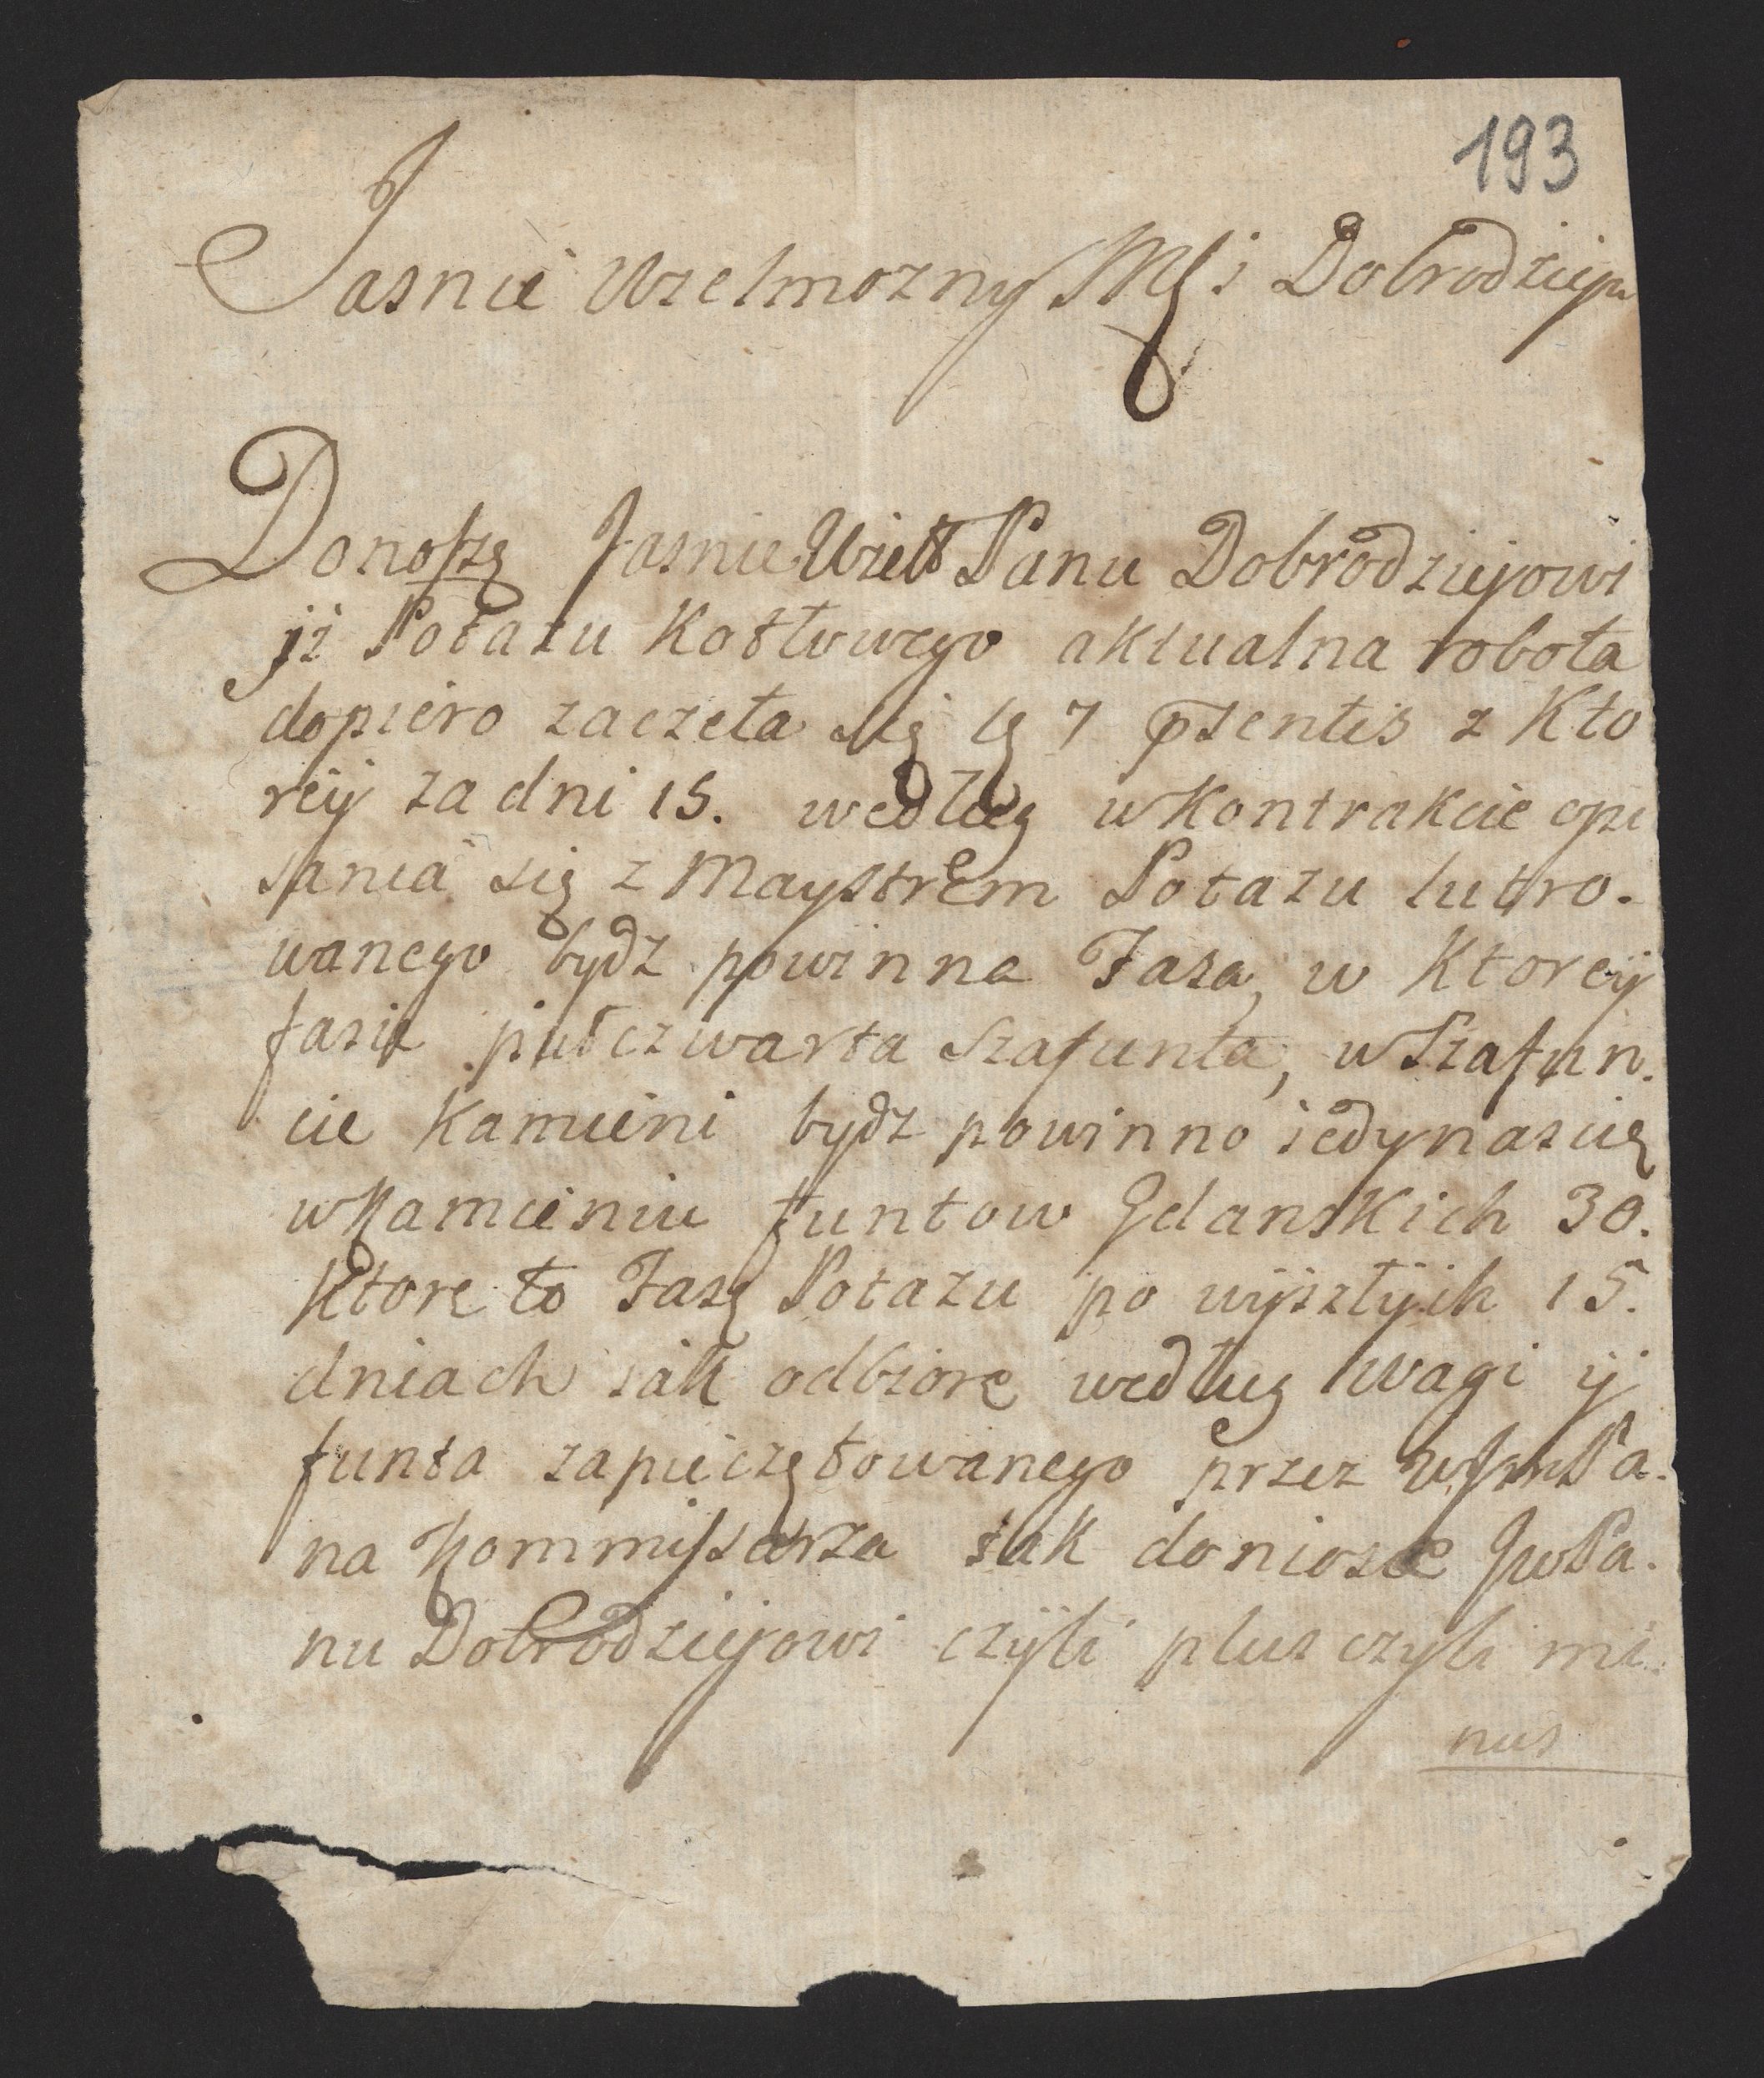 193
Jasnie Wielmozny Mci Dobrodzieju
Donoszę Jasnie Wielo Panu Dobrodziejowi
jż Potażu Kotłowego aktualna robota
dopiero zaczeta się 7 psentis z Kto
rey za dni 15. według w Kontrakcie opi
sania się z Maystrem Potazu lutro.
wanego bydz powinna Fasa, w Ktorey
fasie pułczwarta Szafunta, w Szafun.
cie Kamieni bydz powinno iedynascię
w Kamieniu funtow Gdanskich 30.
Ktore to Fasę Potazu po wyszłych 15.
dniach iak odbiorę według wagi y
funta zapieczętowanego przez WJmPa.
na Kommissarza iak doniose JwPa.
nu Dobrodziejowi czyli plus czyli mi
nus